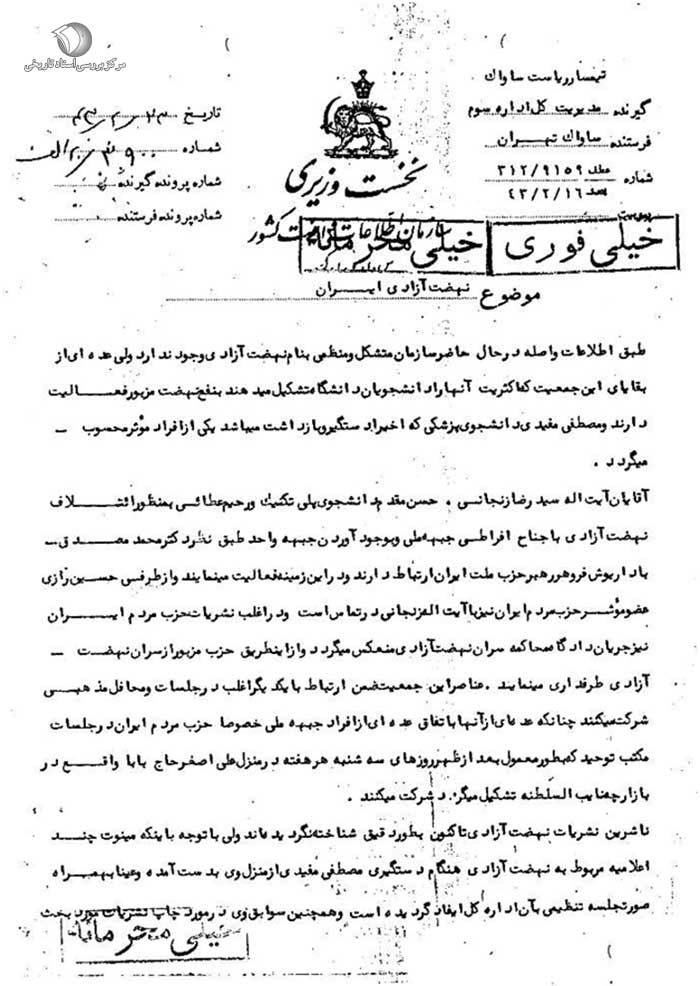 مرکز بررسی اسناد تاریخی
تیمسار ریاست ساواک
گیرنده مدیریت کل اداره سوم
فرستنده ساواک تهران
شماره ۳۱۲/۹۱۵۹
۴۳/۲/۱۶
پیوست
نخست وزیری
سازمان اطلاعات و امنیت کشور
تاریخ
شماره
شماره پرونده گیرنده
شماره پرونده فرستنده
خیلی محرمانه
خیلی فوری
موضوع نهضت آزادی ایران
طبق اطلاعات واصله در حال حاضر سازمان متشکل و منظمی بنام نهضت آزادی وجود ندارد ولی عده ای از
بقایای این جمعیت که اکثریت آنها را دانشجویان دانشگاه تشکیل میدهند بنفع نهضت مزبور فعالیت
دارند و مصطفی مفیدی دانشجوی پزشکی که اخیرا دستگیر و بازداشت میباشد یکی از افراد مؤثر محسوب –
میگردد .
آقایان آیت اله سید رضا زنجانی ، حسن مقدم دانشجوی پلی تکنیک و رحیم عطائی بمنظور ائتلاف
نهضت آزادی با جناح افراطی جبهه ملی و بوجود آوردن جبهه واحد طبق نظر دکتر محمد مصدق –
با داریوش فروهر رهبر حزب ملت ایران ارتباط دارند و در این زمینه فعالیت مینمایند و از طرفی حسین رازی
عضو مؤثر حزب مردم ایران نیز با آیت اله زنجانی در تماس است و در اغلب نشریات حزب مردم ایران
نیز جریان دادگاه محاکمه سران نهضت آزادی منعکس میگردد و از اینطریق حزب مزبور از سران نهضت –
آزادی طرفداری مینمایند . عناصر این جمعیت ضمن ارتباط با یکدیگر اغلب در جلسات و محافل مذهبی
شرکت میکنند چنانکه عده ای از آنها باتفاق عده ای از افراد جبهه ملی خصوصا حزب مردم ایران در جلسات
مکتب توحید که بطور معمول بعد از ظهر روزهای سه شنبه هر هفته در منزل علی اصغر حاج بابا واقع در
بازارچه نایب السلطنه تشکیل میگردد شرکت میکنند .
ناشرین نشریات نهضت آزادی تاکنون بطور دقیق شناخته نگردیده اند ولی با توجه باینکه مینوت چند
اعلامیه مربوط به نهضت آزادی هنگام دستگیری مصطفی مفیدی از منزل وی بدست آمده و عینا بهمراه
صورتجلسه تنظیمی بآن اداره کل ایفاد گردیده است و همچنین سوابق وی در مورد چاپ نشریات مورد بحث
خیلی محرمانه